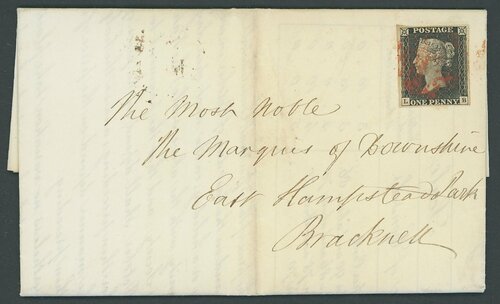 POSTAGE
ONE PENNY
The Most Noble
The Marquis of Downshire
East Hampstead Park
Bracknell